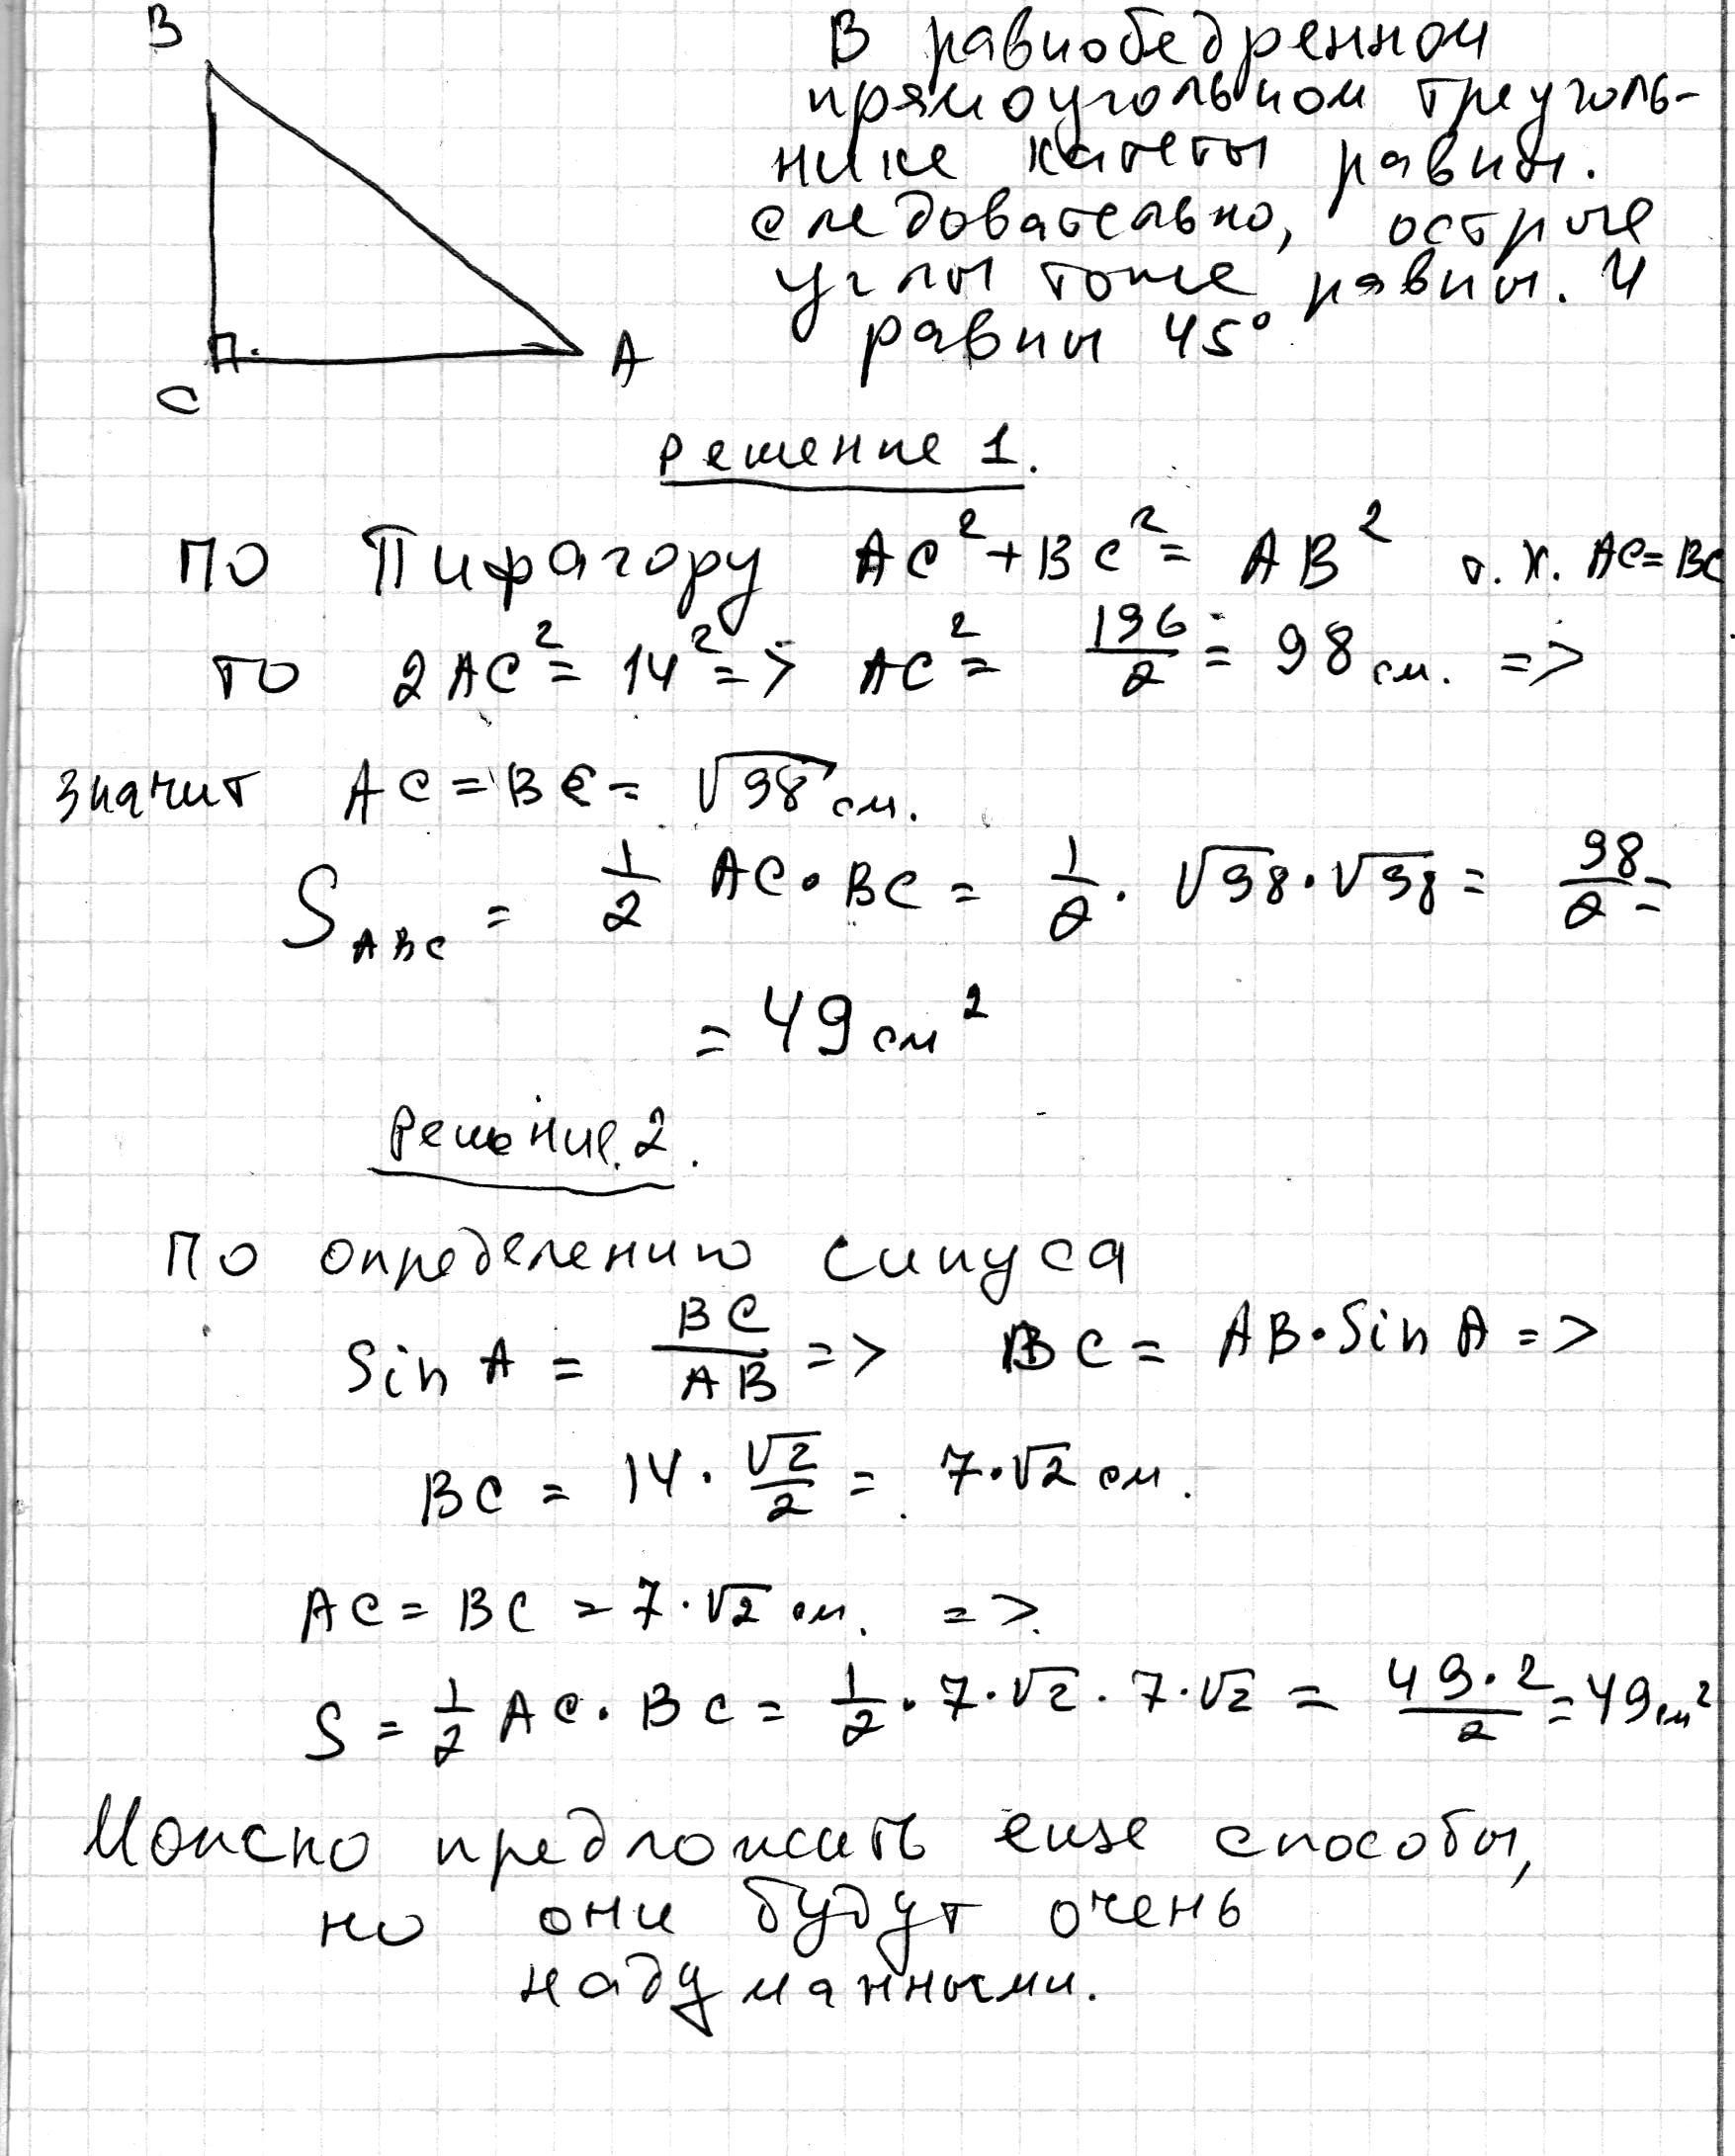 В
В равнобедренном
прямоугольном треуголь-
нике катеты равны.
следовательно, острые
углы тоже равны. И
равны 45°
А
С
Решение 1.
По Пифагору AC² + BC² = AB² т.к. AC = BC
то 2AC² = 14² => AC² = 196/2 = 98 см. =>
значит AC = BC = √98 см.
S ABC = 1/2 AC · BC = 1/2 · √98 · √98 = 98/2 =
= 49 см²
Решение 2.
По определению синуса
Sin A = BC/AB => BC = AB · Sin A =>
BC = 14 · √2/2 = 7·√2 см.
AC = BC = 7·√2 см. =>
S = 1/2 AC · BC = 1/2 · 7·√2 · 7·√2 = 49·2/2 = 49 см²
Можно предложить еще способы,
но они будут очень
надуманными.